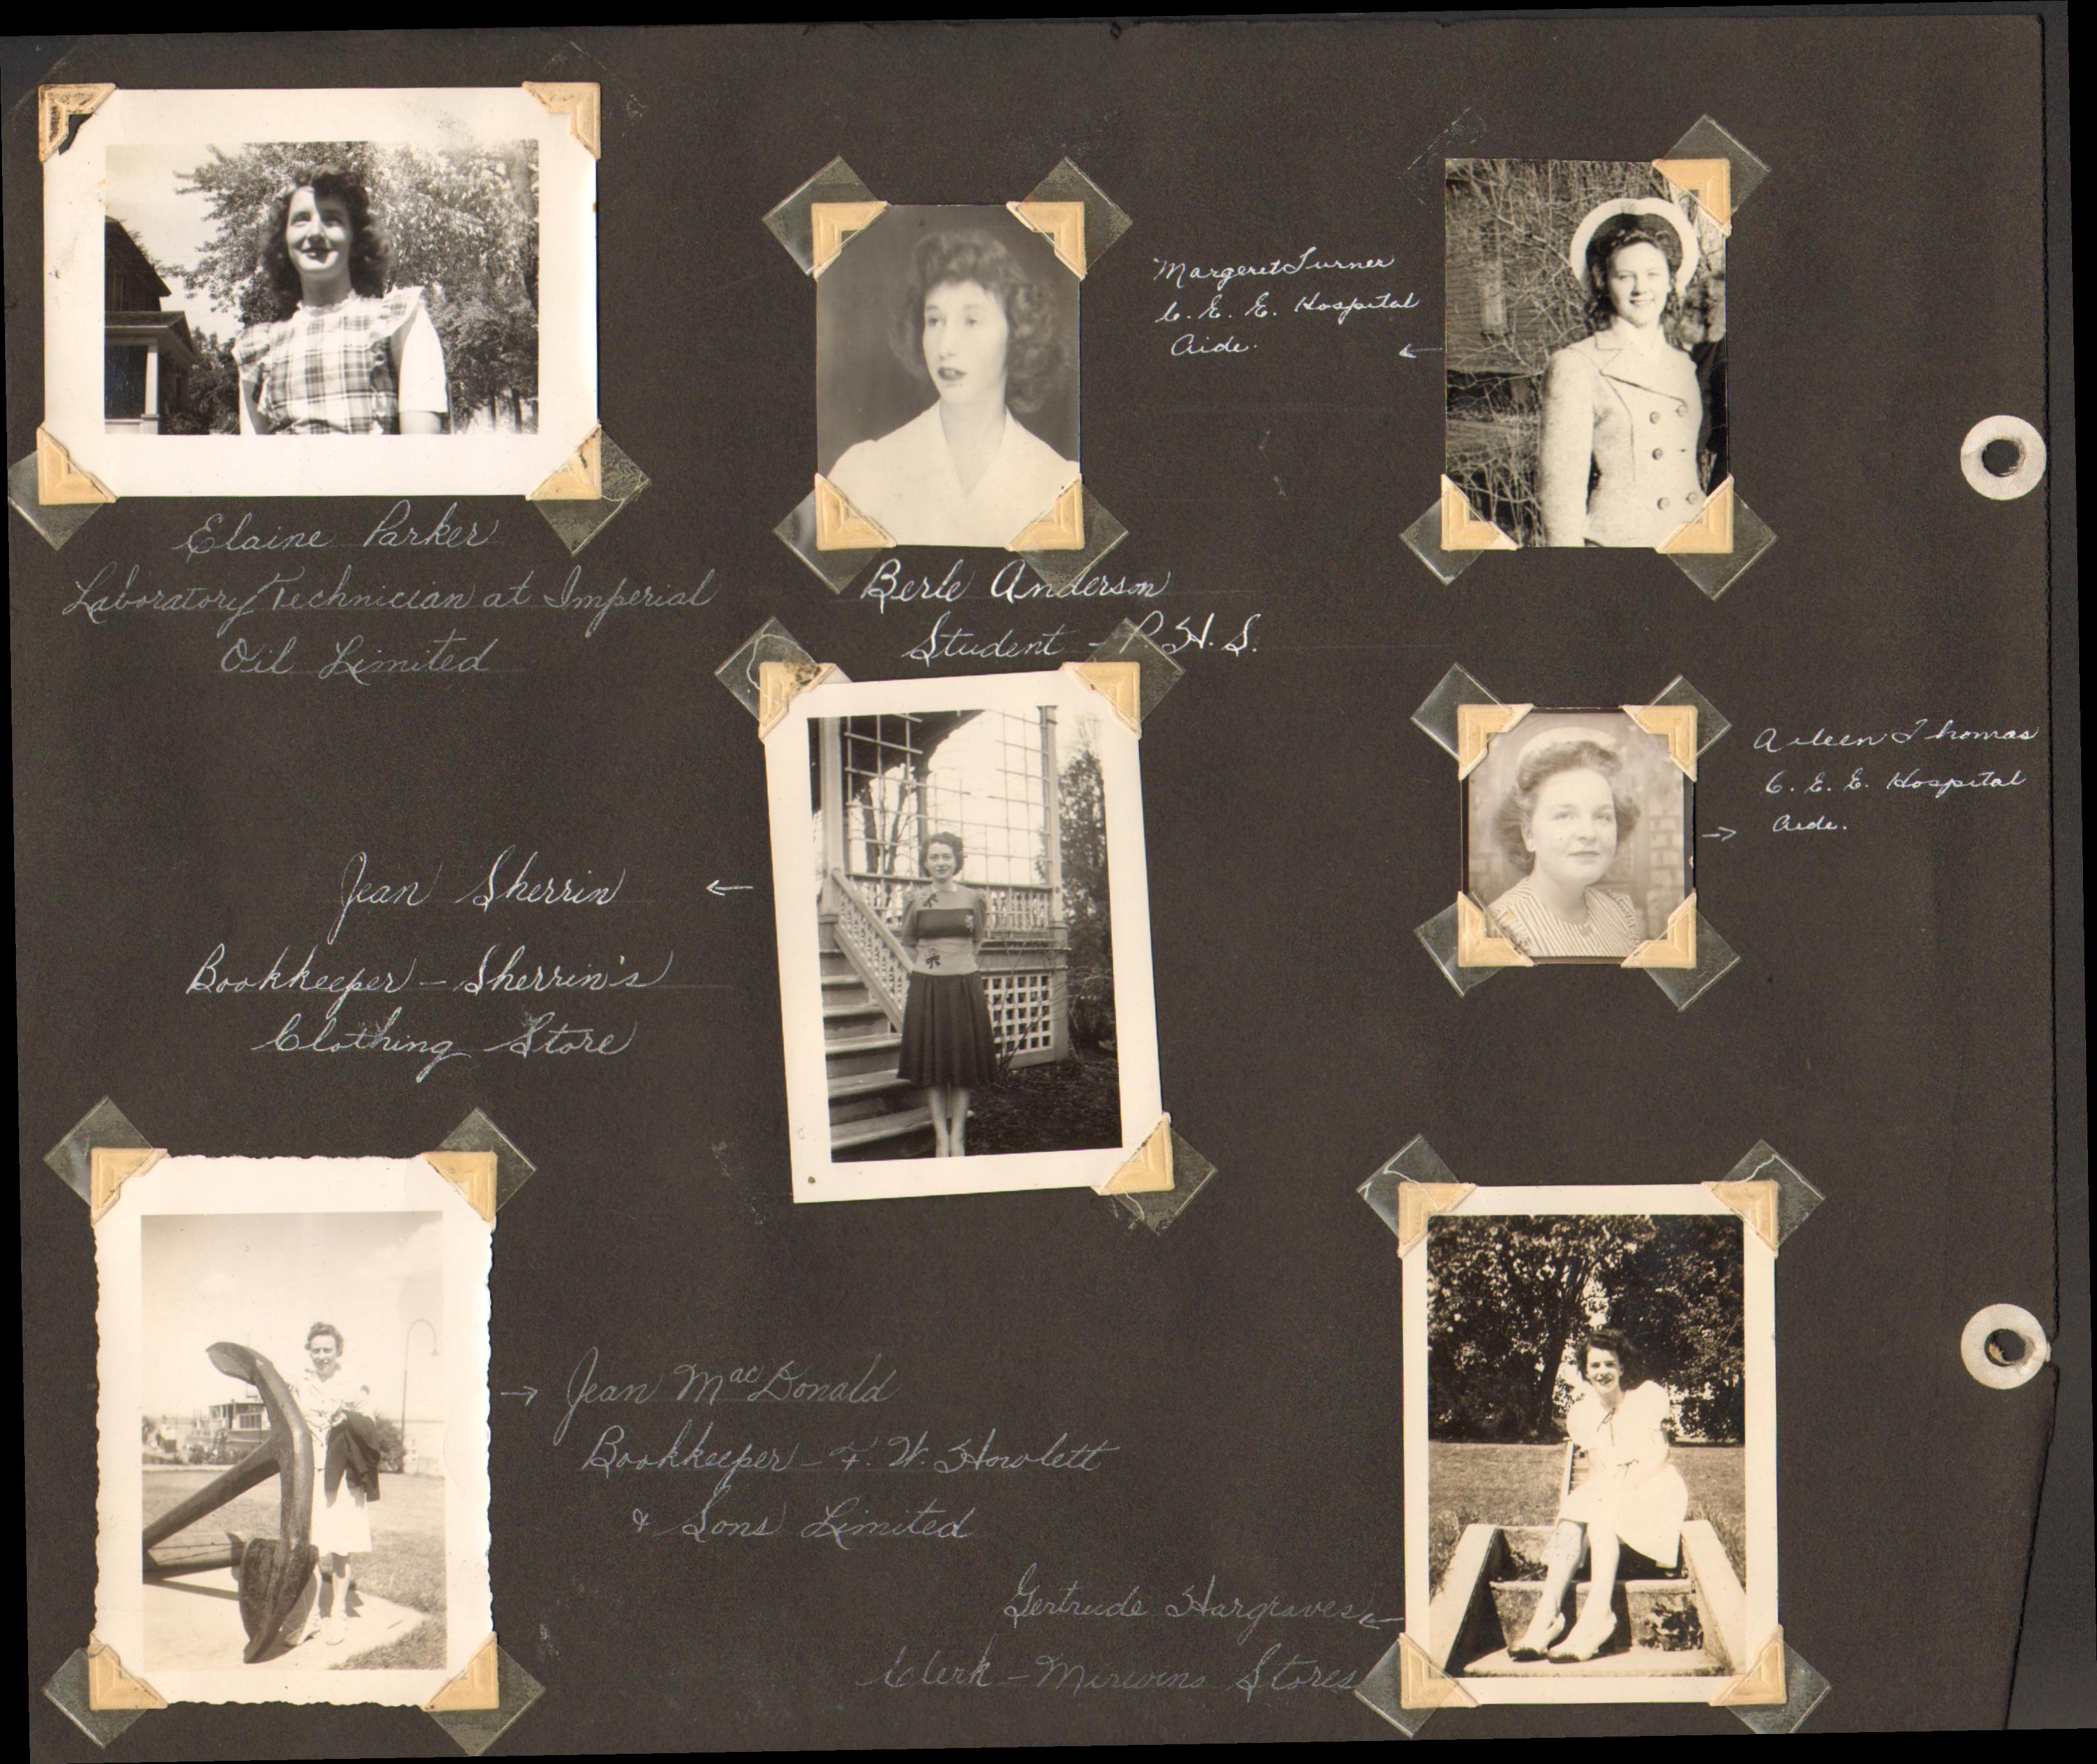 Elaine Parker
Laboratory Technician at Imperial
Oil Limited
Berle Anderson
Student - P.H.S.
Margeret Turner
C. E. E. Hospital
Aide.
Aileen Thomas
C. E. E. Hospital
Aide.
Jean Sherrin
Bookkeeper - Sherrin's
Clothing Store
Jean MacDonald
Bookkeeper - F. W. Howlett
& Sons Limited
Gertrude Hargraves
Clerk - Stores